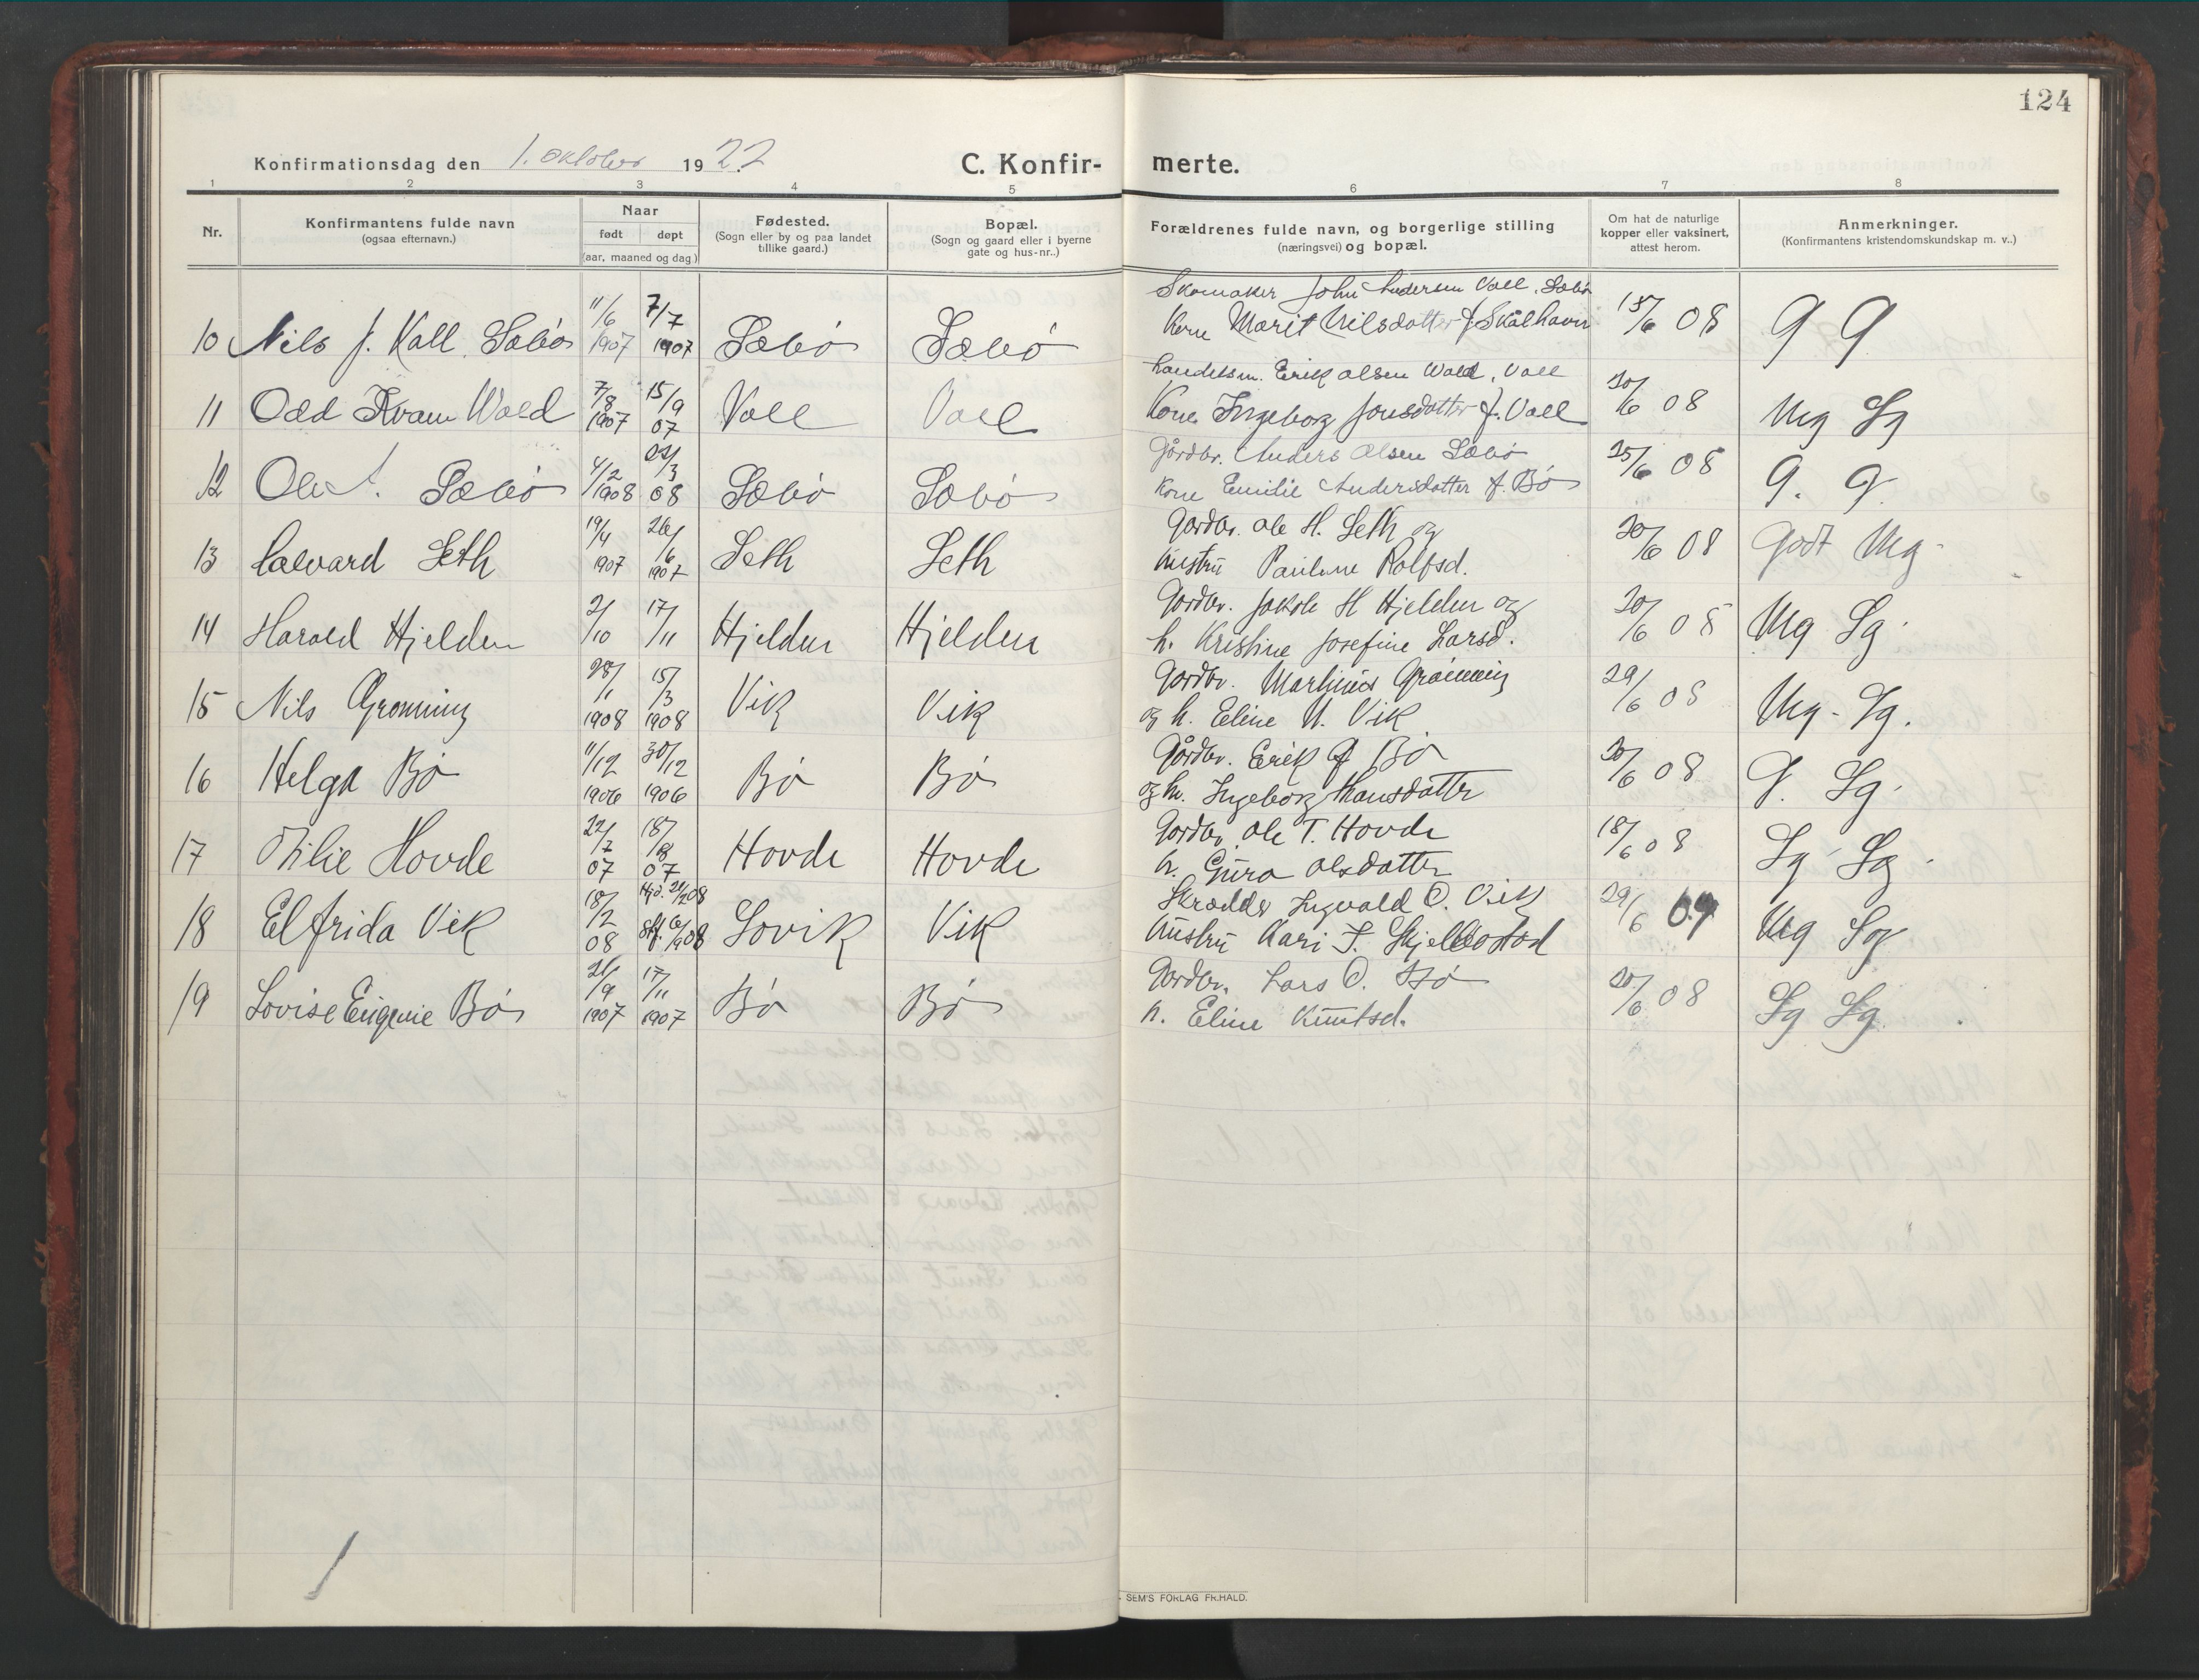 124
Konfirmationsdag den 1. oktober 1922.
C. Konfir- merte.
1 2 3 4 5 6 7 8
Nr.
Konfirmantens fulde navn
(ogsaa efternavn.)
Naar
født døpt
(aar, maaned og dag.)
Fødested.
(Sogn eller by og paa landet
tillike gaard.)
Bopæl.
(Sogn og gaard eller i byerne
gate og hus-nr..)
Forældrenes fulde navn, og borgerlige stilling
(næringsvei) og bopæl.
Om hat de naturlige
kopper eller vaksinert,
attest herom.
Anmerkninger.
(Konfirmantens kristendomskundskap m. v..)
Skomaker John Andersen Vall, Sæbø
10 Nils J. Vall, Sæbø 11/6 1907 7/7 1907 Sæbø Sæbø Kone Marit Nilsdatter f. Skålhavn 15/6 08 G G
Handelsm. Erik Olsen Wold, Voll
11 Odd Kvam Wold 7/8 1907 15/9 07 Voll Voll Kone Ingeborg Jonsdatter f. Voll 20/6 08 Mg Sg
Gårdbr. Anders Olsen Sæbø
12 Ole A. Sæbø 4/2 1908 /3 08 Sæbø Sæbø Kone Emilie Andersdatter f. Bø 25/6 08 G. G.
Gårdbr. Ole H. Seth og
13 Halvard Seth 19/4 1907 26/6 1907 Seth Seth Hustru Pauline Rolfsd. 20/6 08 Godt Mg
Gårdbr. Jakob H Hjelden og
14 Harald Hjelden 2/10 17/11 Hjelden Hjelden h. Kristine Josefine Larsd. 20/6 08 Mg Sg
Gårdbr. Martinus Grønning
15 Nils Grønning 28/1 1908 15/3 1908 Vik Vik og h. Eline N. Vik 29/6 08 Mg - Sg.
Gårdbr. Erik Bø
16 Helga Bø 11/12 1906 30/12 1906 Bø Bø og h. Ingeborg Hansdatter 20/6 08 G. Sg.
Gårdbr. Ole T. Hovde
17 Otilie Hovde 22/7 07 18/8 07 Hovde Hovde h. Guro Olsdatter 18/6 08 Sg Sg
Skrædder Ingvald O. Vik
18 Elfrida Vik 18/2 08 Hjd. 21/2 08 Sovik Vik Hustru Kari J. Skjelbostad 29/6 09 Mg Sg
Gårdbr. Lars O. Bø
19 Lovise Eugenie Bø 21/9 1907 17/11 1907 Bø Bø h. Eline Knutsd. 20/6 08 Sg Sg.
SEM'S FORLAG FR.HALD.